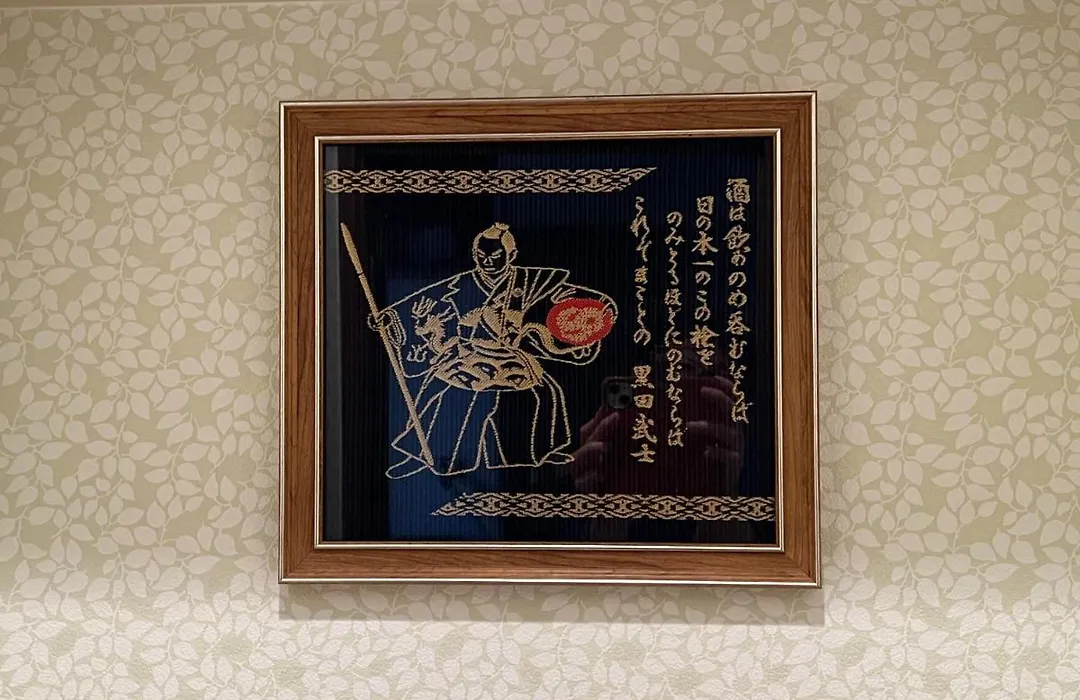 酒は飲めのめ呑むならば
日の本一のこの槍を
のみとる程にのむならば
これぞまことの 黒田武士